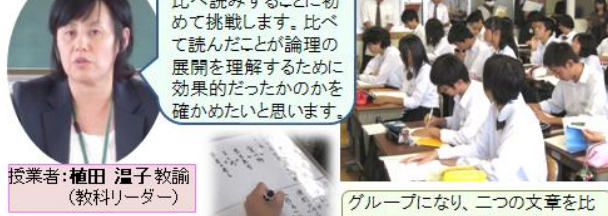 比べ読みすることに初
めて挑戦します。比べ
て読んだことが論理の
展開を理解するために
効果的だったかのかを
確かめたいと思います。
授業者:植田 温子教諭
(教科リーダー)
グループになり、二つの文章を比